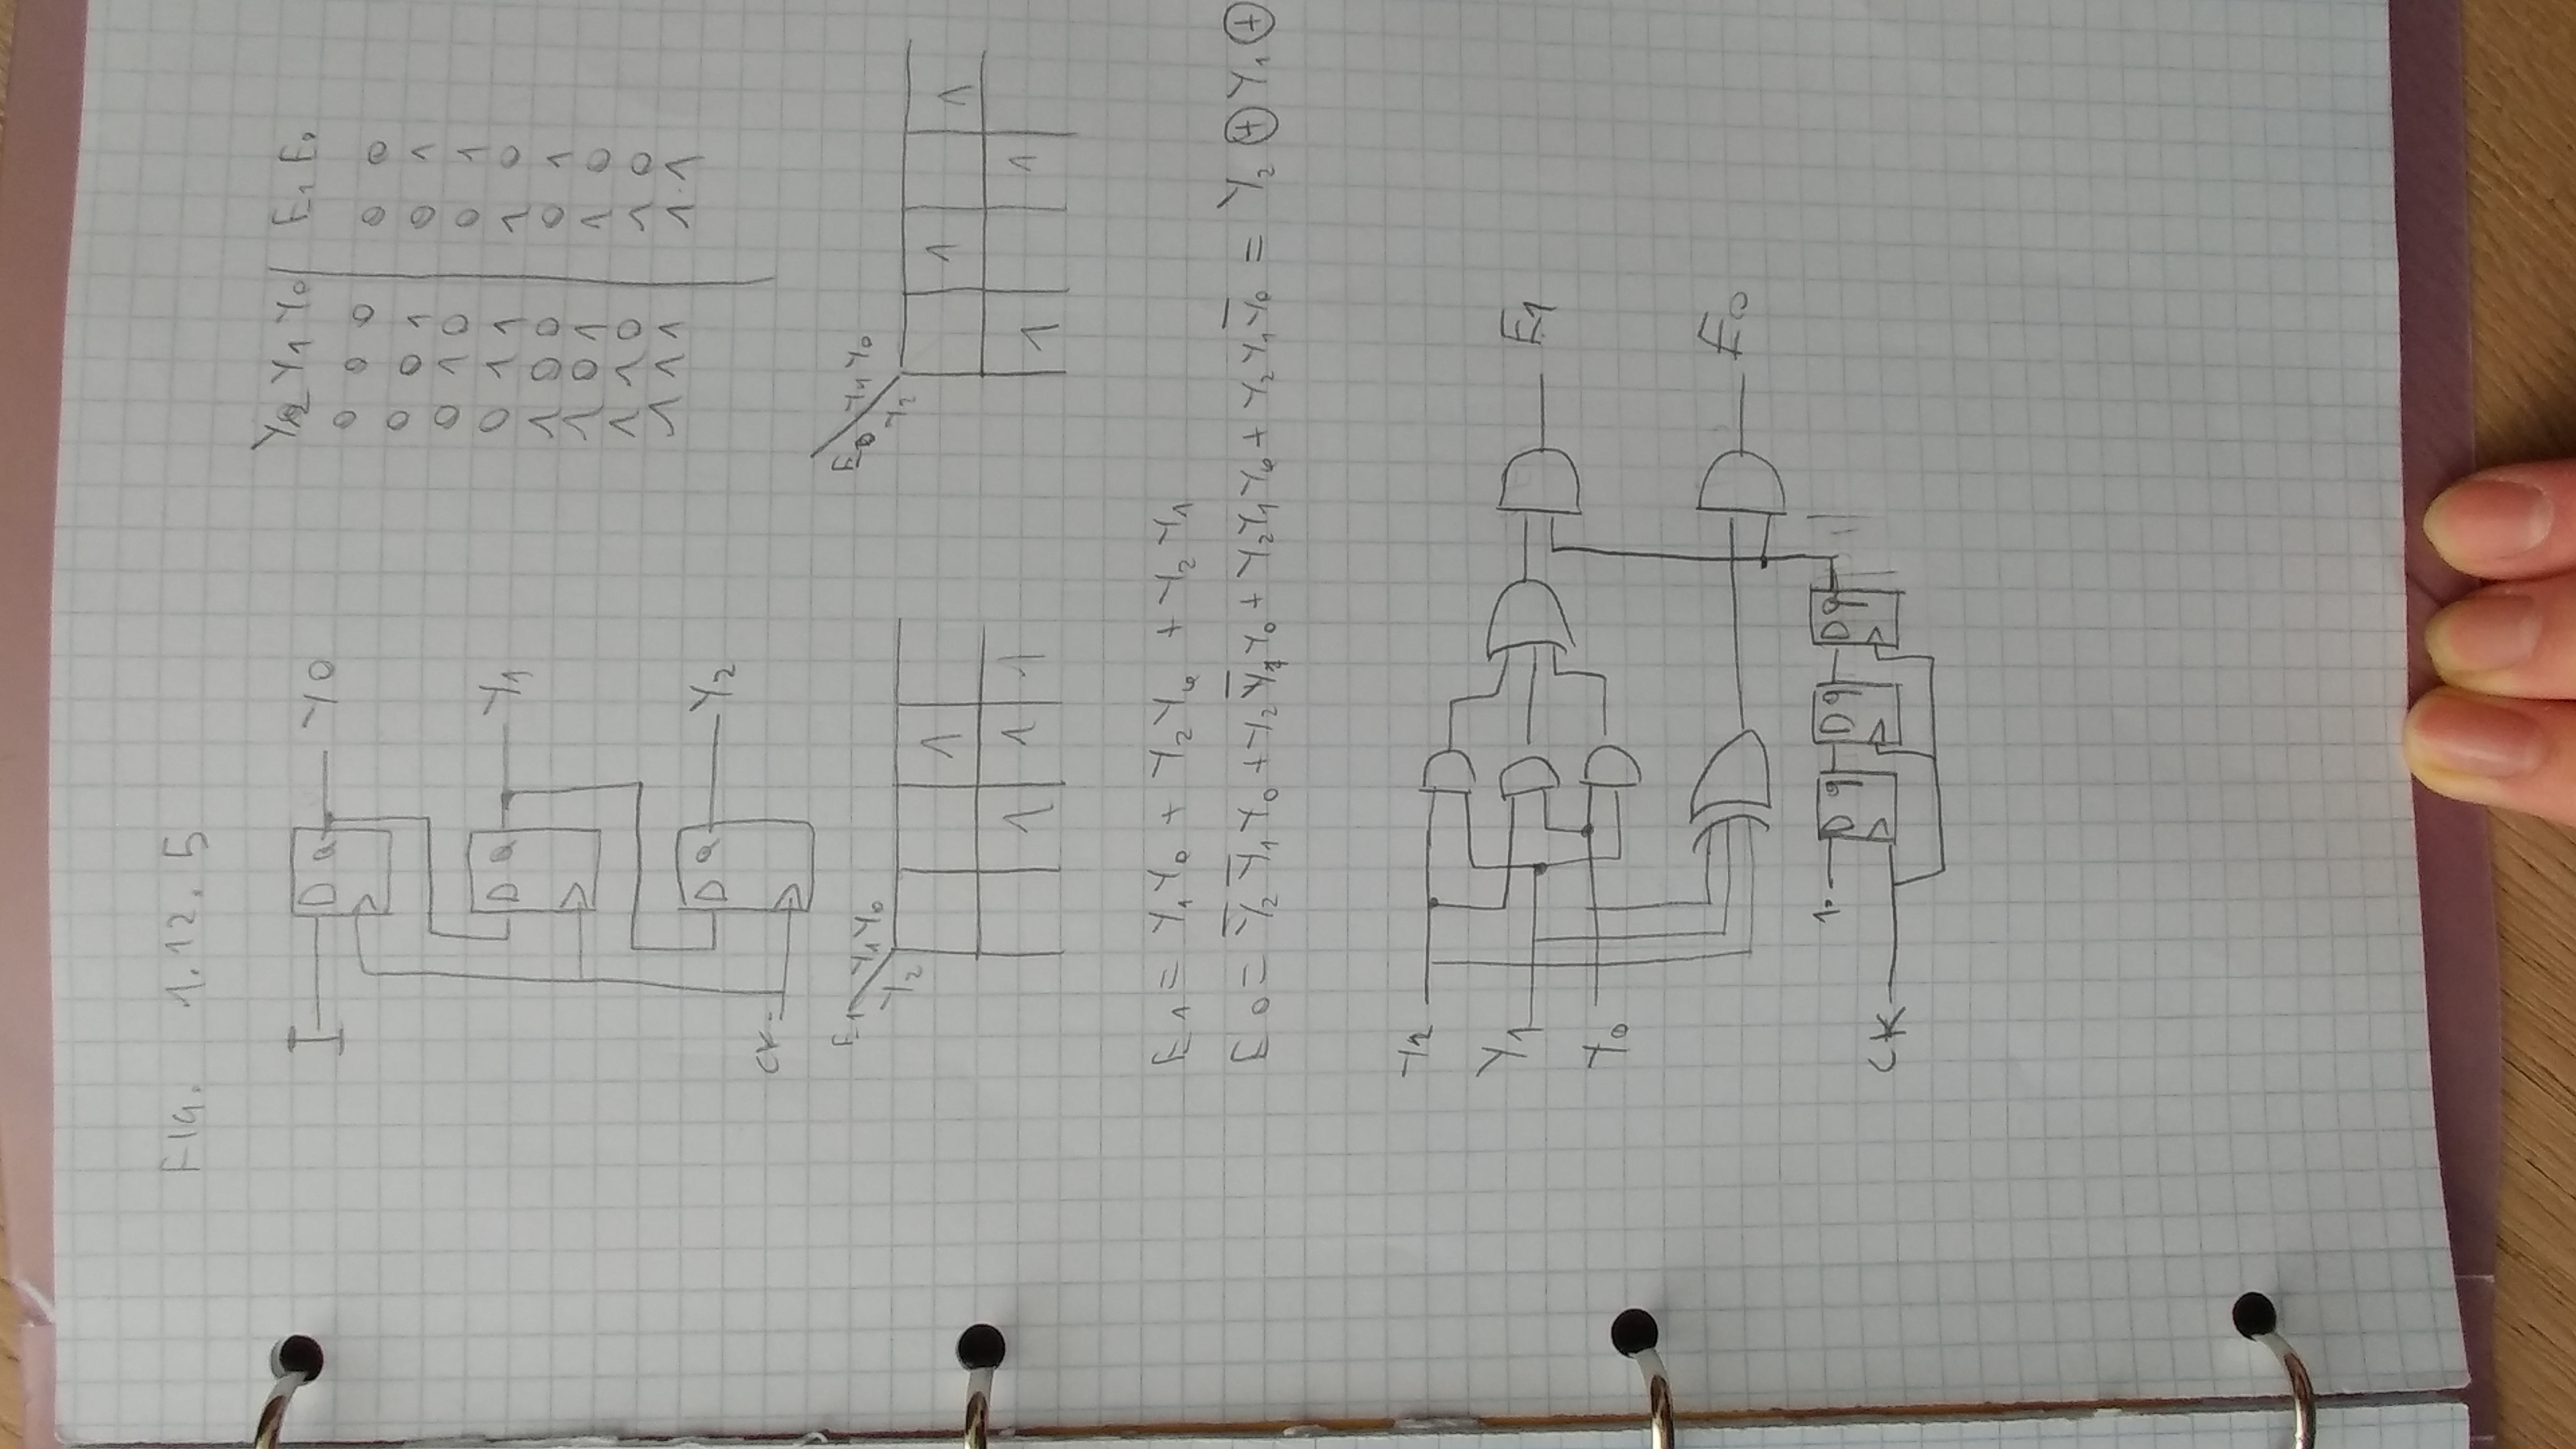 FIG. 1.12.5
I D Q Y0
D Q Y1
D Q Y2
CK
Y2 Y1 Y0 E1 E0
0 0 0 0 0
0 0 1 0 1
0 1 0 0 1
0 1 1 1 0
1 0 0 0 1
1 0 1 1 0
1 1 0 1 0
1 1 1 1 1
E1 Y1 Y0
Y2
1
1 1 1
E0 Y1 Y0
Y2
1 1
1 1
E1 = Y1 Y0 + Y2 Y0 + Y2 Y1
E0 = Y̅2 Y̅1 Y0 + Y2 Y̅1 Y0 + Y2 Y1 Y0 + Y2 Y1 Y̅0 = Y2 ⊕ Y1 ⊕
Y2
Y1
E1
Y0
E0
1 D q D q D q
CK